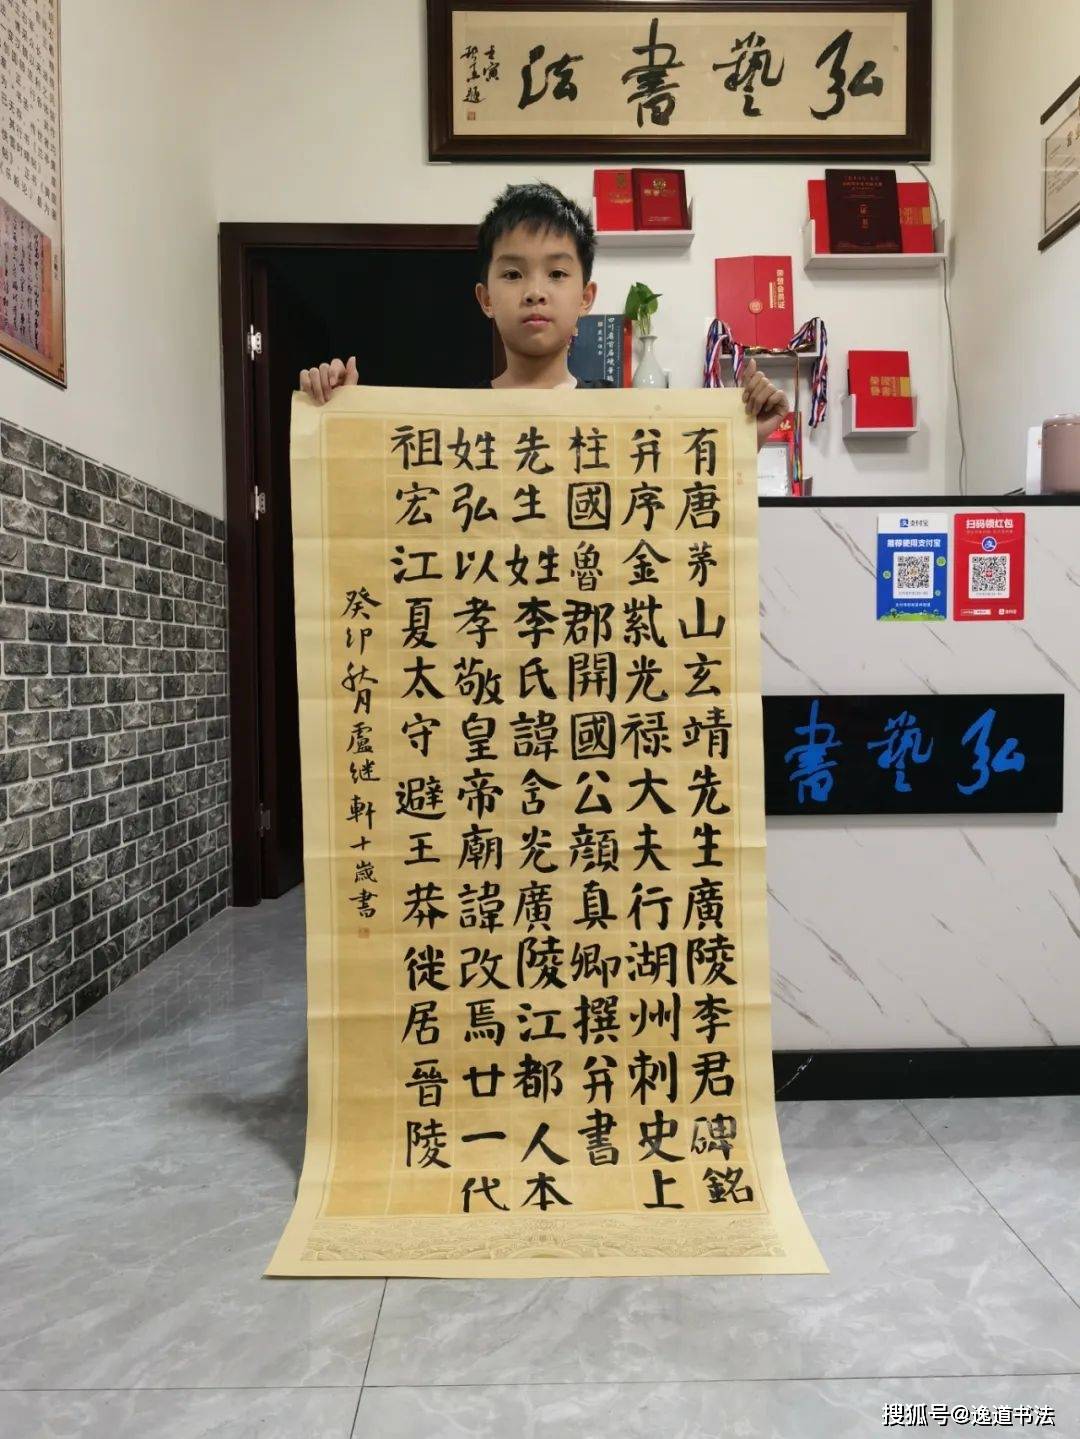 弘藝書法
壬寅
有唐茅山玄靖先生廣陵李君碑銘
并序金紫光禄大夫行湖州刺史上
柱國魯郡開國公顔真卿撰并書
先生姓李氏諱含光廣陵江都人本
姓弘以孝敬皇帝廟諱改焉廿一代
祖宏江夏太守避王莽徙居晉陵
癸卯秋月盧继軒十歲書
四川省首届硬筆
榮譽會員證
支付宝
推荐使用支付宝
扫码领红包
弘藝書
搜狐号@逸道书法